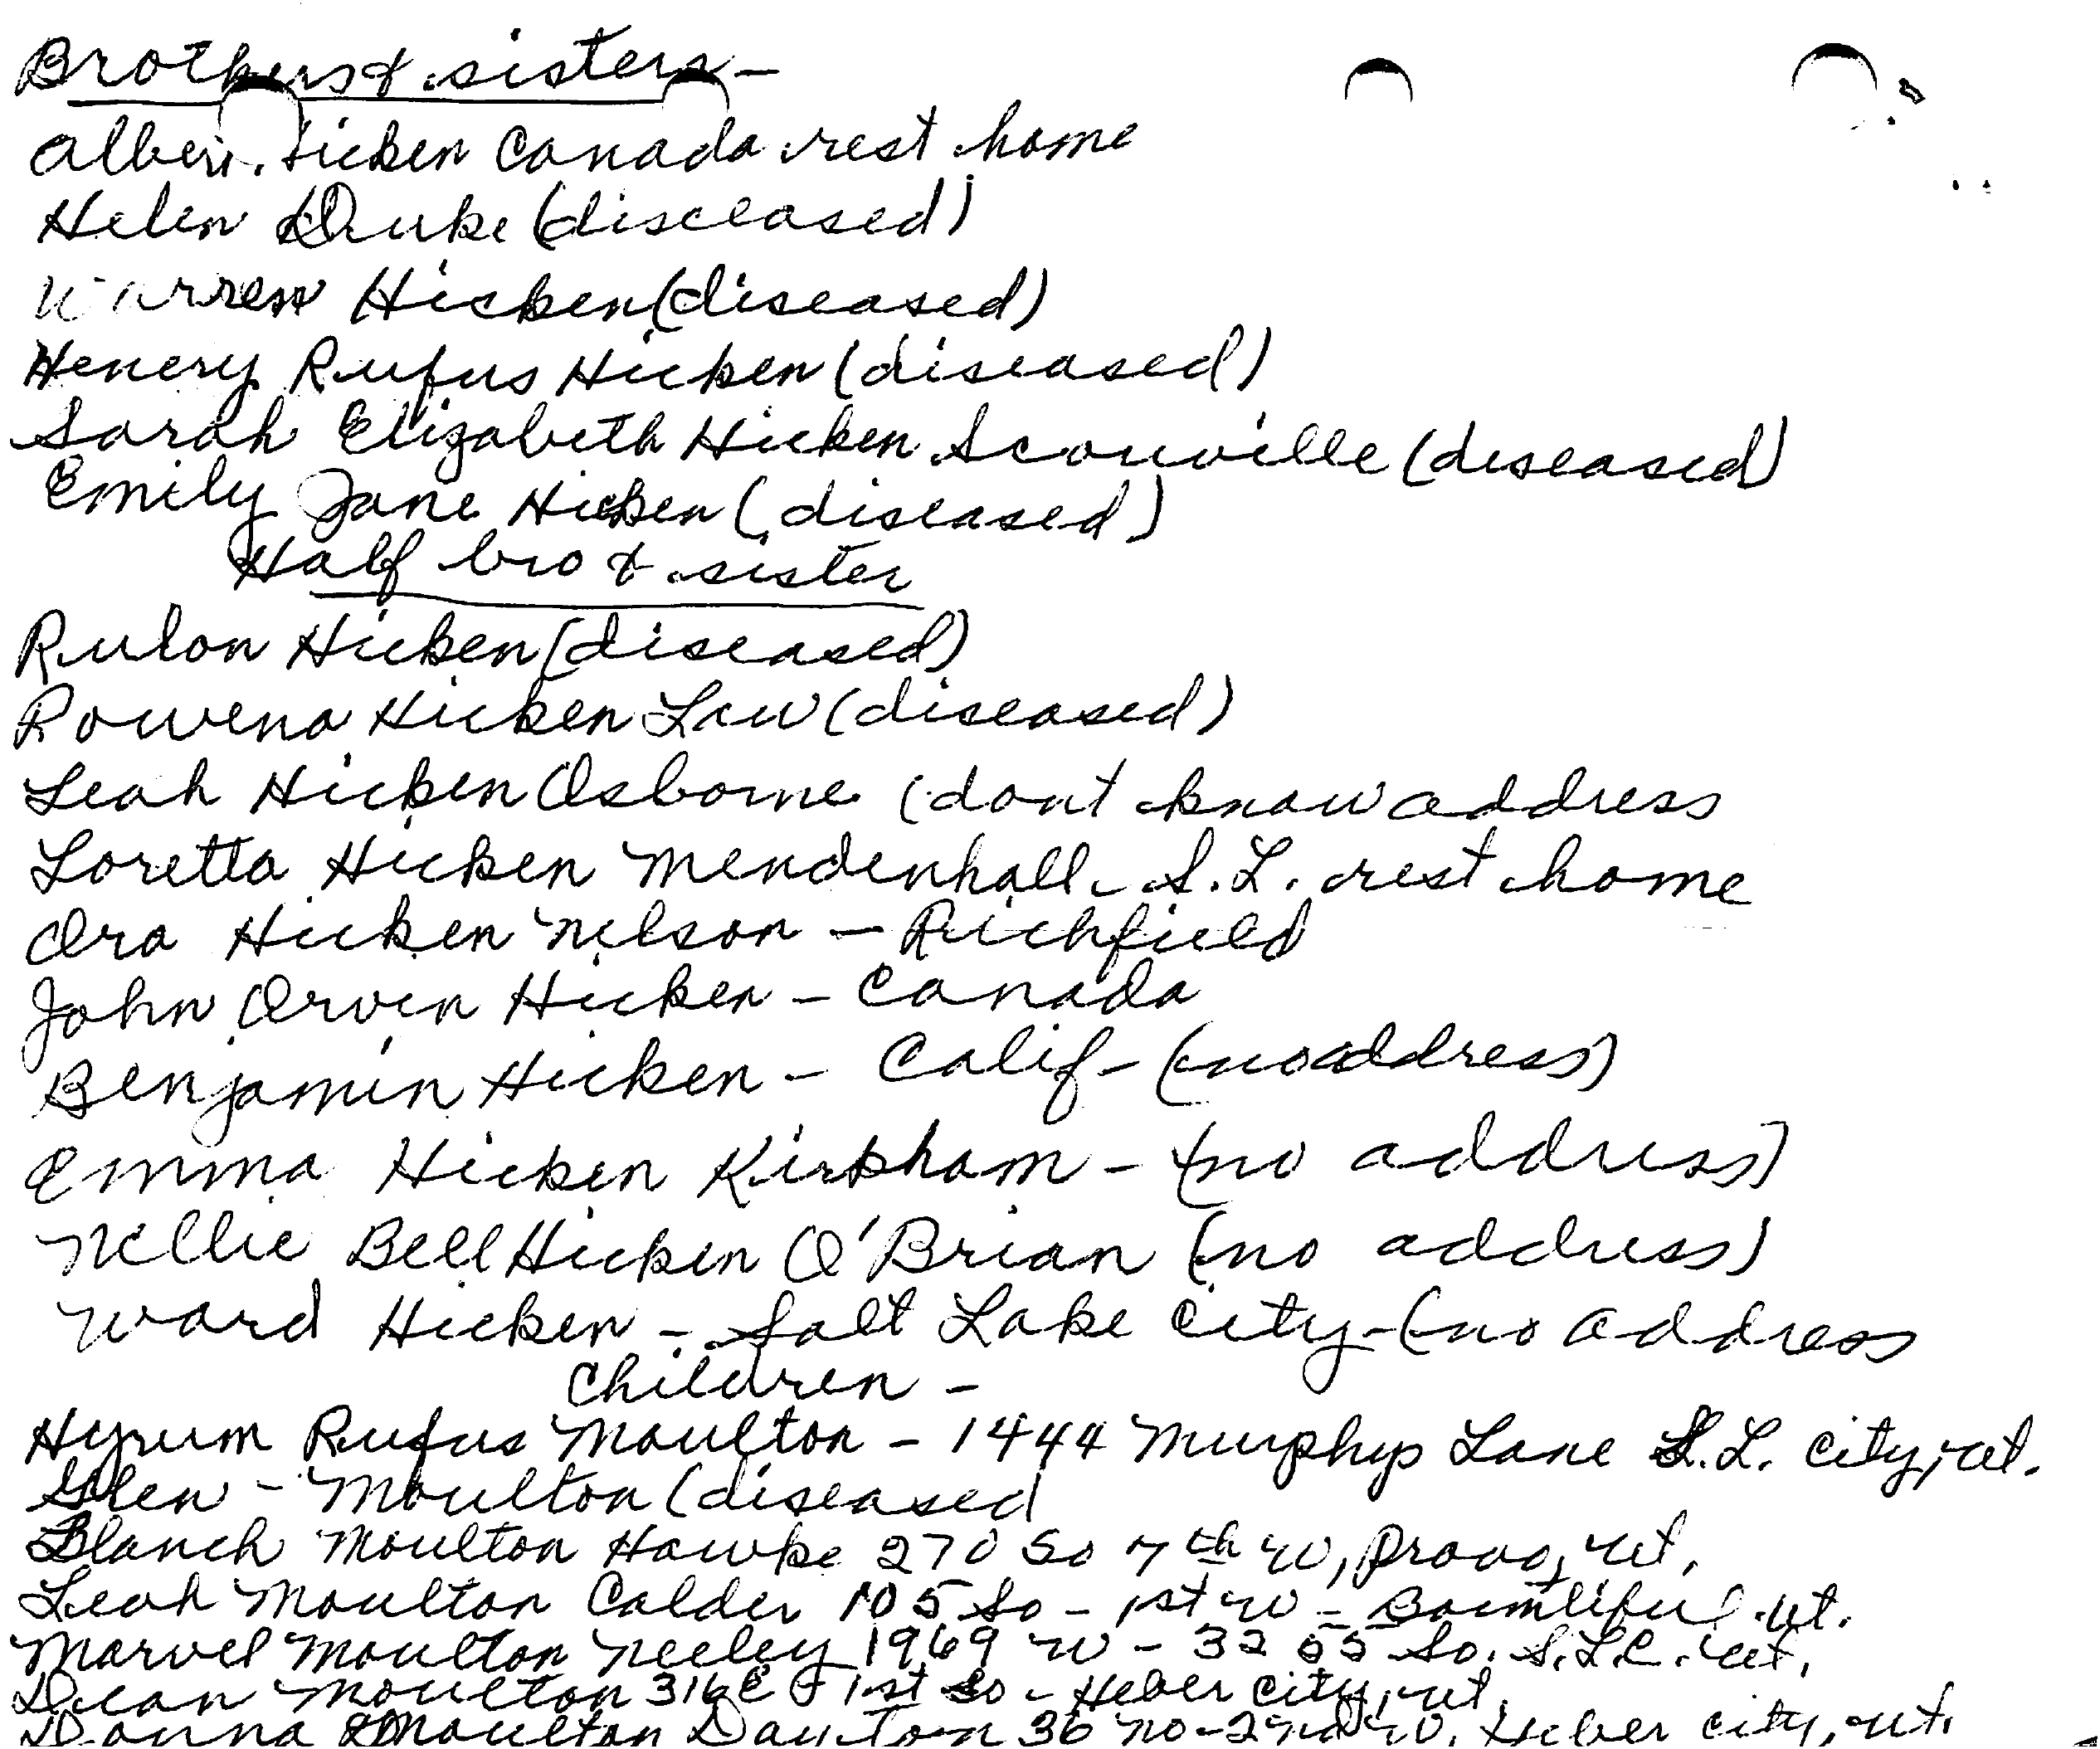 Brothers & sisters -
Albert Hicken Canada rest home
Helen Duke (disceased)
Warren Hicken (diseased)
Henery Rufus Hicken (diseased)
Sarah Elizabeth Hicken Scouville (diseased)
Emily Jane Hicken (diseased)
Half bro & sister
Rulon Hicken (diseased)
Rowena Hicken Law (diseased)
Leah Hicken Osborne (dont know address
Loretta Hicken Mendenhall - S.L. rest home
Ora Hicken Nelson - Richfield
John Orven Hicken - Canada
Benjamin Hicken - Calif - (no address)
Emma Hicken Kirkham - (no address)
Nellie Bell Hicken O'Brian (no address)
Ward Hicken - Salt Lake City - (no address
Children -
Hyrum Rufus Moulton - 1444 Murphys Lane S.L. City, ut.
Glen - Moulton (diseased
Blanch Moulton Hawke 270 So 7th W, Provo, ut.
Leah Moulton Calder 105 So - 1st W - Bountiful ut.
Marvel Moulton Neeley 1969 W - 3255 So. S.L.C. ut.
Dean Moulton 316 E - 1st So - Heber City, ut.
Donna Moulton Dayton 36 No - 2nd W, Heber City, ut.